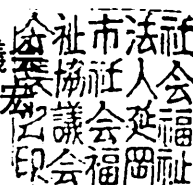 社会福祉
法人延岡
市社会福
祉協議会
会長之印
宏